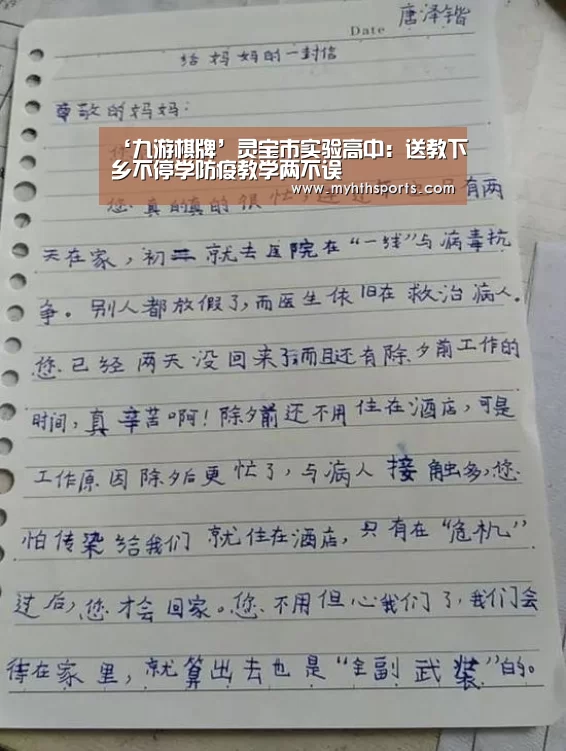 唐泽锴
Date
给妈妈的一封信
尊敬的妈妈：
‘九游棋牌’灵宝市实验高中：送教下
乡不停学防疫教学两不误
www.myhthsports.com
您真的真的很忙，连过年 只有两
天在家，初二就去医院在“一线”与病毒抗
争。别人都放假了，而医生依旧在救治病人。
您已经两天没回来了而且还有除夕前工作的
时间，真辛苦啊！除夕前还不用住在酒店，可是
工作原因除夕后更忙了，与病人接触多，您
怕传染给我们就住在酒店，只有在“危机”
过后，您才会回家。您不用但心我们了，我们会
待在家里，就算出去也是“全副武装”的。